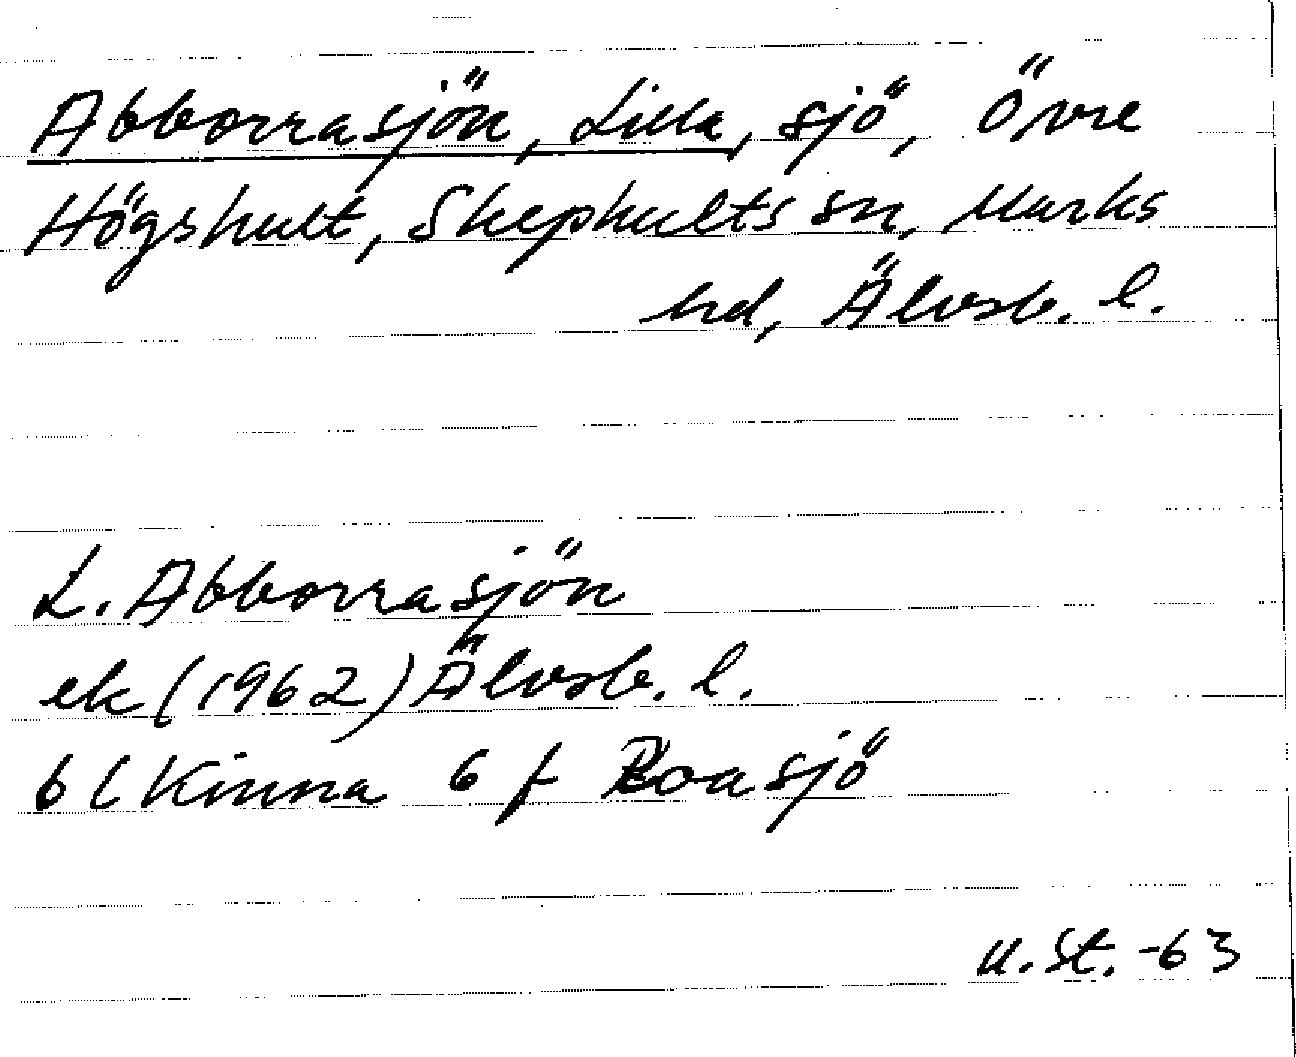 Abborrasjön, Lilla, sjö, Övre
Högshult, Skephults sn, Marks
hd, Älvsb. l.
L. Abborrasjön
ek (1962) Älvsb. l.
6 C Kinna 6 f Roasjö
U.St. -63